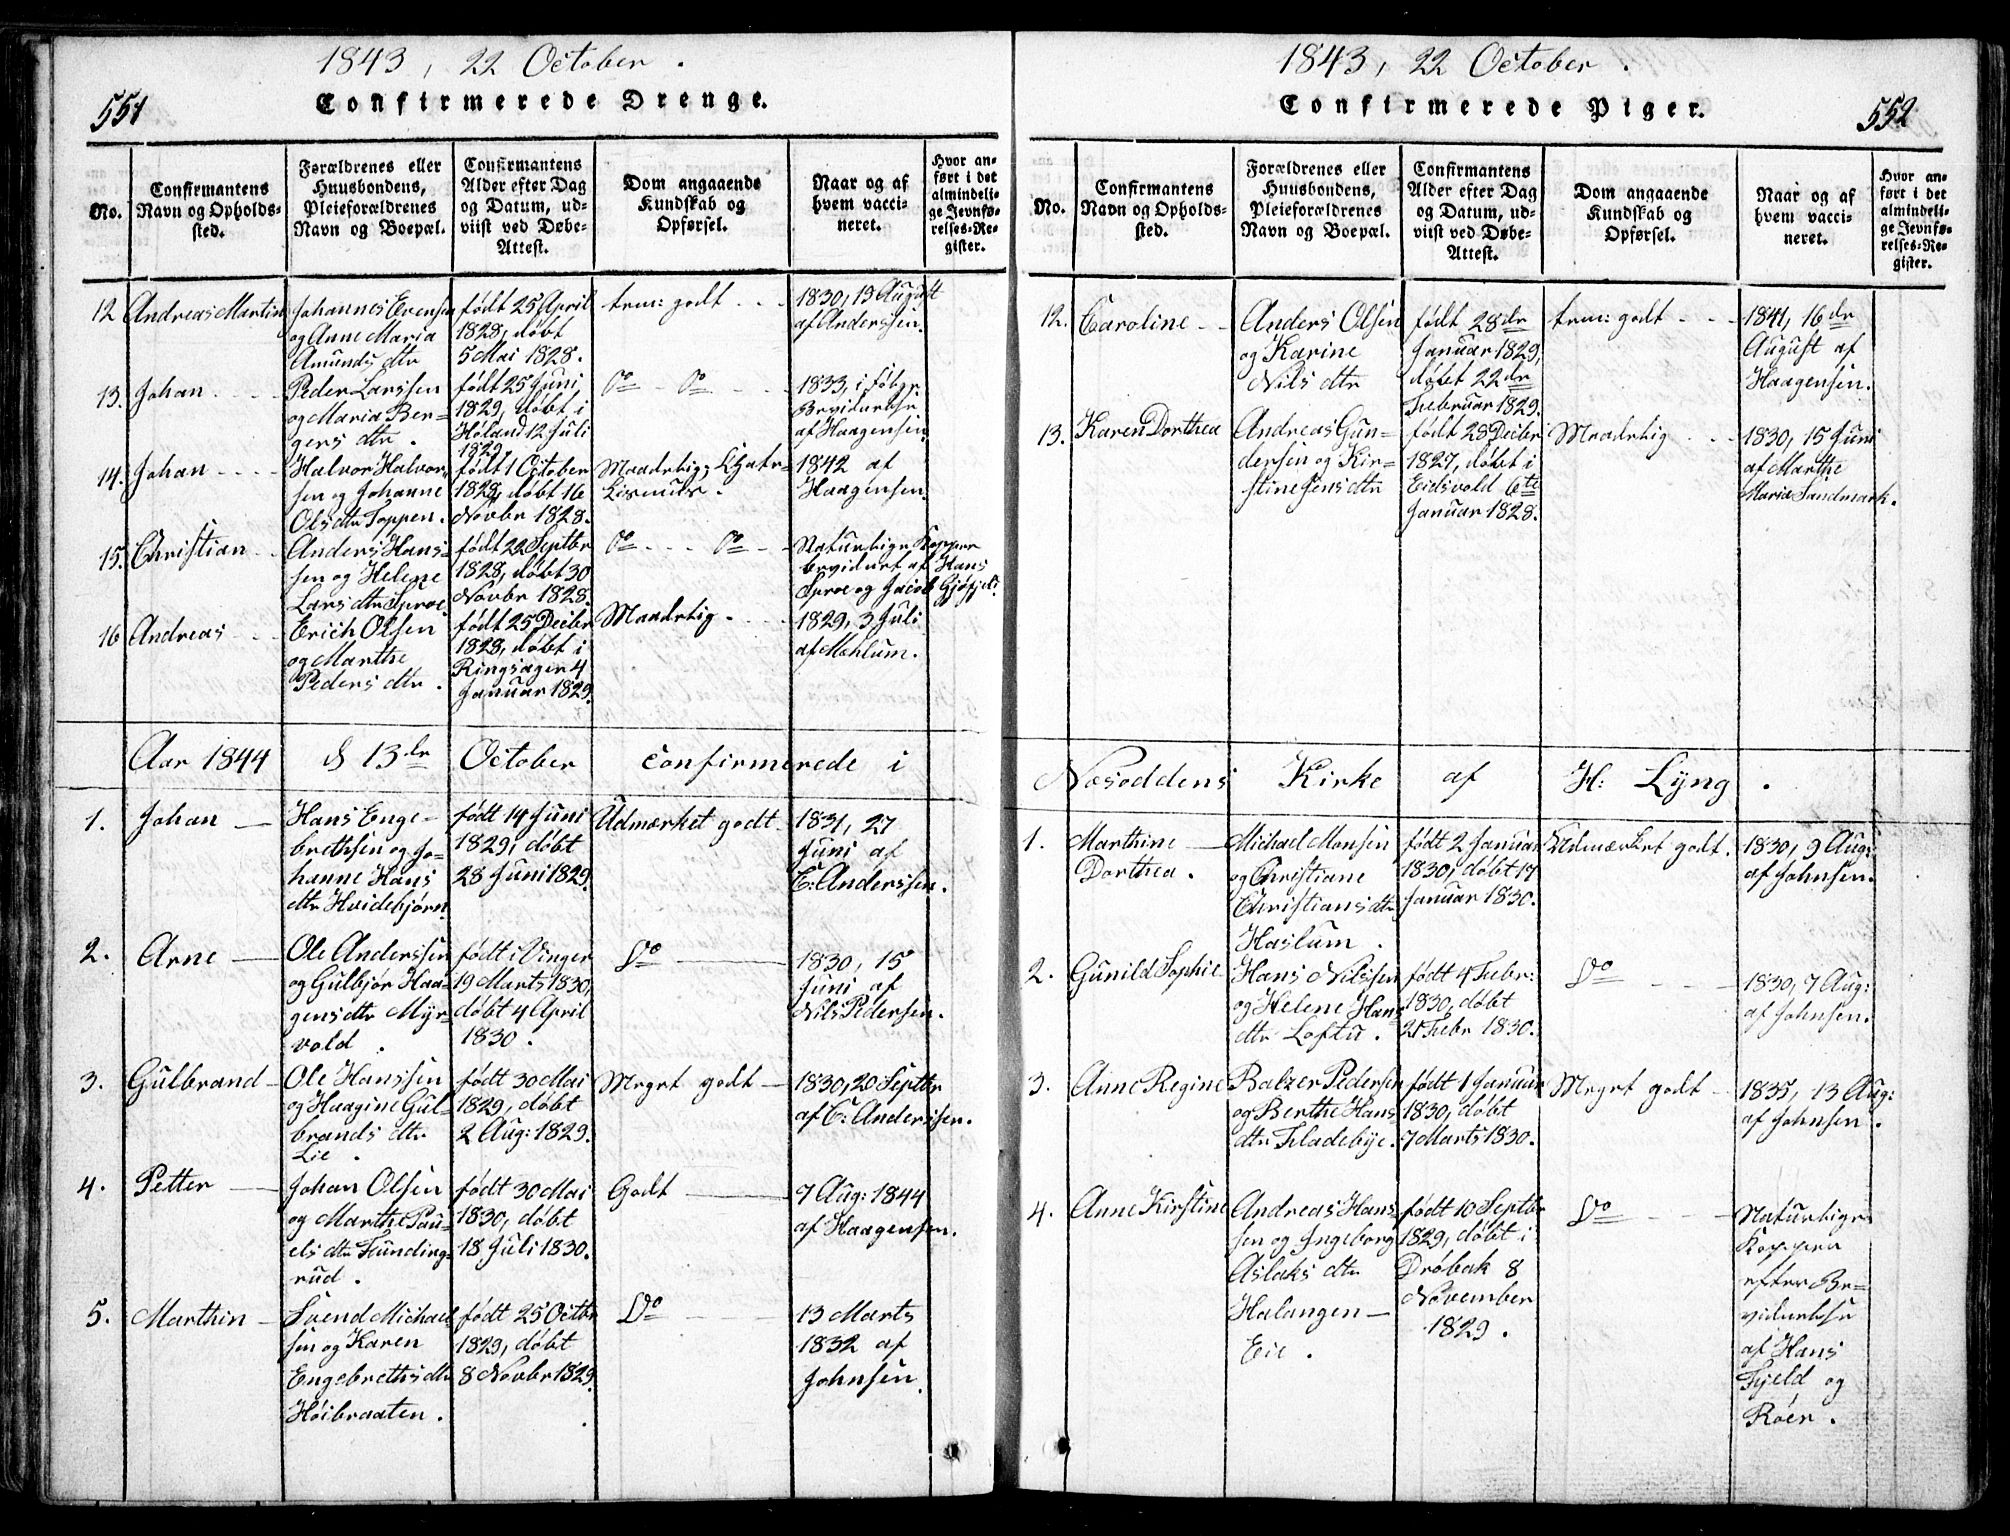 1843, 22 October.
551
Confirmerede Drenge.
No.
Confirmantens
Navn og Opholds-
sted.
Forældrenes eller
Huusbondens,
Pleieforældrenes
Navn og Boepæl.
Confirmantens
Alder efter Dag
og Datum, ud-
viist ved Døbe-
Attest.
Dom angaaende
Kundskab og
Opførsel.
Naar og af
hvem vacci-
neret.
Hvor an-
ført i det
almindeli-
ge Jevnfø-
relses-Re-
gister.
12 Andreas Martin
Johannes Evensen
og Anne Maria
Amunds dtr
født 25 April
1828, døbt
5 Mai 1828.
tem: godt
1830, 19 August
af Anderssen.
13. Johan
Peder Larssen
og Maria Ber-
gers dtr.
født 25 Juni,
1829, døbt i
Høland 12 Juli
1829.
Do Do
1833, i følge
af Haagensen.
14. Johan
Halvor Halvor-
sen og Johanne
Ols dtr Toppen.
født 1 October
1828, døbt 16
Novbr 1828.
Maadelig;
1842 af
Haagensen.
15. Christian
Anders Hans-
sen og Helene
Lars dtr Sproe.
født 22 Septbr
1828, døbt 30
Novbr 1828.
Do Do
Naturlige Kopper
bevidnet af Hans
Sproe og Jacob
16 Andreas
Erich Olsen
og Marthe
Peders dtr.
født 25 Decbr
1828, døbt i
Ringsager 4
Januar 1829.
Maadelig.
1829, 3 Juli
af Mehlum.
Aar 1844 d 13de October confirmerede i
1. Johan
Hans Enge-
brethsen og Jo-
hanne Hans
dtr Hvidebjørn.
født 14 Juni
1829, døbt
28 Juni 1829.
Udmærket godt
1831, 27
Juni af
C: Anderssen.
2. Arne
Ole Anderssen
og Gulbjør Haa-
gens dtr Myr-
vold.
født i Vinger
19 Marts 1830,
døbt 4 April
1830.
Do
1830, 15
Juni af
Nils Pedersen.
3. Gulbrand
Ole Hanssen
og Haagine Gul-
brands dtr
Lie.
født 30 Mai
1829, døbt
2 Aug: 1829.
Meget godt
1830, 20 Septbr
af C: Anderssen.
4. Petter
Johan Olsen
og Marthe Pau-
els dtr Funding-
rud.
født 30 Mai
1830, døbt
18 Juli 1830.
Godt
7 Aug: 1844
af Haagensen.
5. Marthin
Svend Michael-
sen og Karen
Engebreths dtr
Høibraaten.
født 25 Octbr
1829, døbt
8 Novbr 1829.
Do
13 Marts
1832 af
Johnsen.
1843, 22 October.
Confirmerede Piger.
552
No.
Confirmantens
Navn og Opholds-
sted.
Forældrenes eller
Huusbondens,
Pleieforældrenes
Navn og Boepæl.
Confirmantens
Alder efter Dag
og Datum, ud-
viist ved Døbe-
Attest.
Dom angaaende
Kundskab og
Opførsel.
Naar og af
hvem vacci-
neret.
Hvor an-
ført i det
almindeli-
ge Jevnfø-
relses-Re-
gister.
12. Caroline
Anders Olsen
og Karine
Nils dtr
født 28de
Januar 1829,
døbt 22de
Februar 1829.
tem: godt
1841, 16de
August af
Haagensen.
13. Karen Dorthea
Andreas Gun-
dersen og Kir-
stine Jens dtr
født 28 Decbr
1827, døbt i
Eidsvold 6te
Januar 1828.
Maadelig
1830, 15 Juni
af Marthe
Maria Sandmark.
Næsoddens Kirke af H: Lyng.
1. Marthine
Dorthea.
Michael Monsen
og Christiane
Christians dtr
Haslum.
født 2 Januar
1830, døbt 17
Januar 1830.
Udmærket godt.
1830, 9 Aug:
af Johnsen.
2. Gunild Sophie
Hans Nilssen
og Helene Hans
dtr Loftu.
født 4 Febr:
1830, døbt
21 Febr 1830.
Do
1830, 7 Aug:
af Johnsen.
3. Anne Regine
Balzer Pedersen
og Berthe Hans
dtr Fladebye.
født 1 Januar
1830, døbt
7 Marts 1830.
Meget godt
1835, 13 Aug:
af Johnsen.
4. Anne Kirstine
Andreas Hans-
sen og Ingeborg
Aslaks dtr
Halangen
Eie.
født 10 Septbr
1829, døbt i
Drøbak 8
November
1829.
Do
Naturlige
Kopper
efter Be-
vidnelse
af Hans
Fjeld og
Røer.